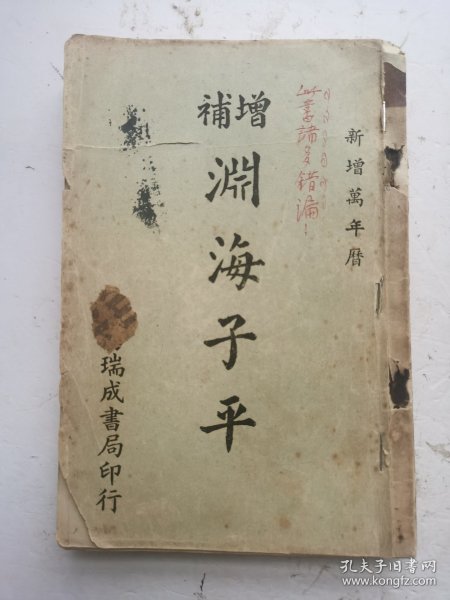 新增萬年曆
此書諸多錯漏!
增補
淵海子平
瑞成書局印行
孔夫子旧书网
www.kongfz.com